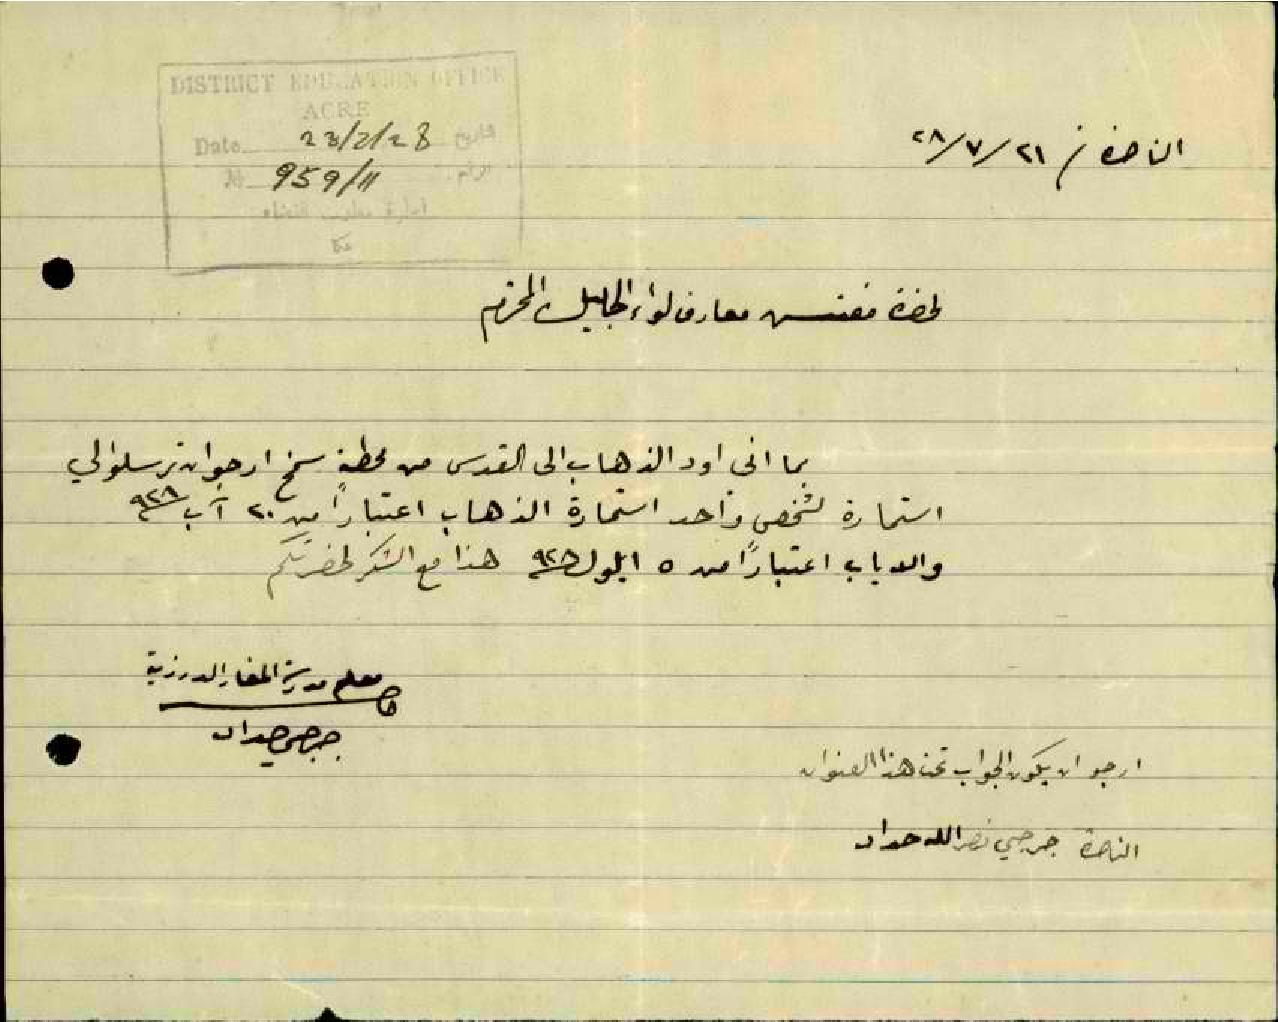 DISTRICT EDUCATION OFFICE
ACRE
Date 23/7/28 تاريخ
№ 959/11 الرقم
ادارة معارف القضاء
عكا
الناصرة / ٢١/ ٧/ ٢٨
لحضرة مفتش معارف لواء الجليل المحترم
بما انى اود الذهاب الى القدس من محطة سمخ ارجو ان ترسلوا لي
استمارة لشخص واحد استمارة الذهاب اعتباراً من ٢٠ آب ٩٢٨
والاياب اعتباراً من ٥ ايلول ٩٢٨ هذا مع الشكر لحضرتكم
معلم مدرسة المغار الدرزية
جرجي حداد
ارجو ان يكون الجواب تحت هذا العنوان
الناصرة جرجي نصرالله حداد